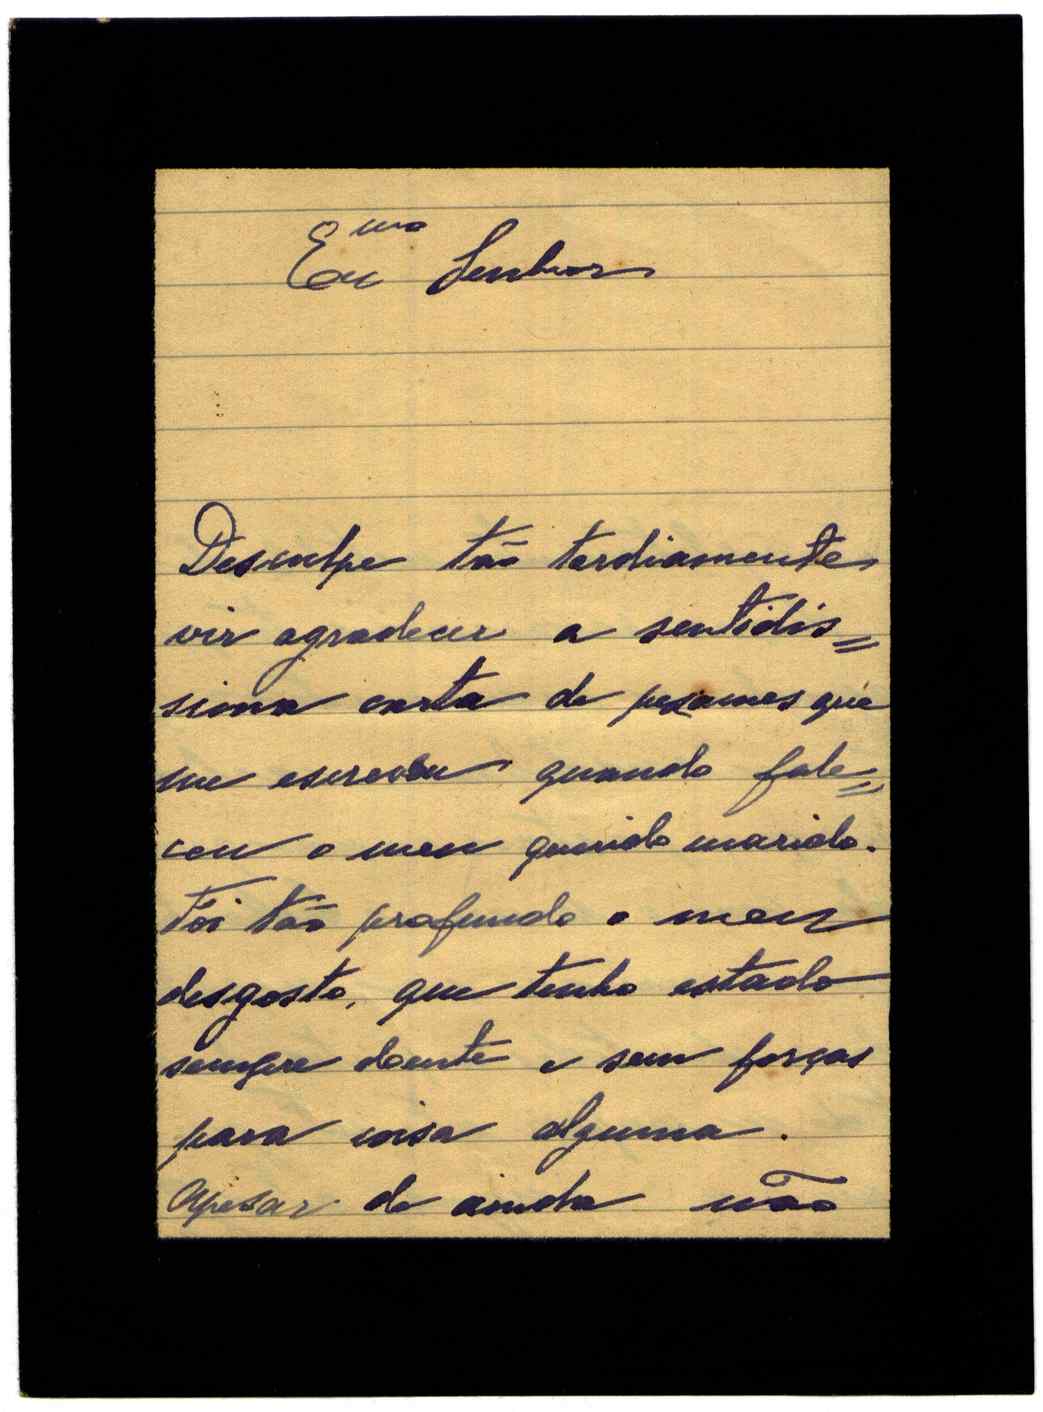 Exmo Senhor
Desculpe tão tardiamente
vir agradecer a sentidis=
sima carta de pezames que
me escreveu quando fale=
ceu o meu querido marido.
Foi tão profundo o meu
desgosto, que tenho estado
sempre doente e sem forças
para coisa alguma.
Apesar de ainda não